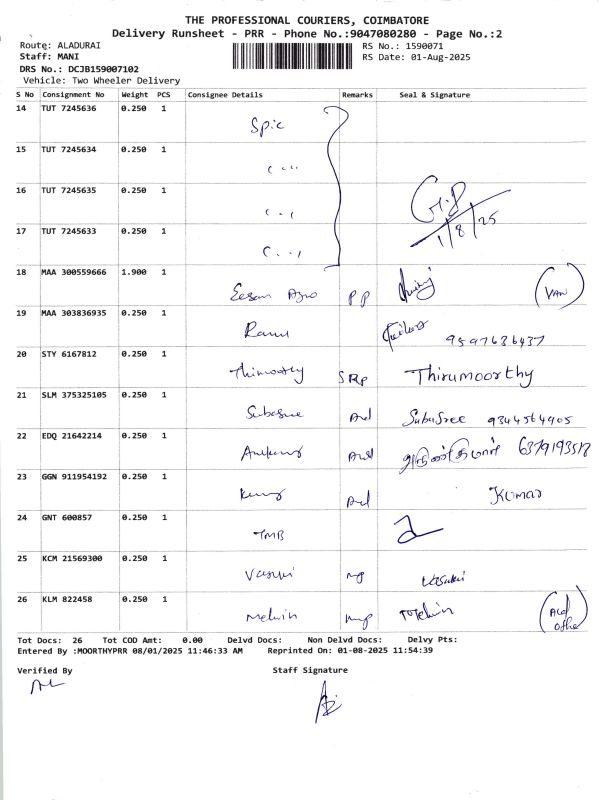 THE PROFESSIONAL COURIERS, COIMBATORE
Delivery Runsheet - PRR - Phone No.:9047080280 - Page No.:2
Route: ALADURAI RS No.: 1590071
Staff: MANI RS Date: 01-Aug-2025
DRS No.: DCJB159007102
Vehicle: Two Wheeler Delivery
S No Consignment No Weight PCS Consignee Details Remarks Seal & Signature
14 TUT 7245636 0.250 1
Spic
15 TUT 7245634 0.250 1
16 TUT 7245635 0.250 1
1/8/25
17 TUT 7245633 0.250 1
18 MAA 300559666 1.900 1
Eesan Agro PP (VAN)
19 MAA 303836935 0.250 1
9597636437
20 STY 6167812 0.250 1
Thimoorthy SRP Thirumoorthy
21 SLM 375325105 0.250 1
Subasree SubaSree 9344564905
22 EDQ 21642214 0.250 1
அருண்குமார்
23 GGN 911954192 0.250 1
Kumar
24 GNT 600857 0.250 1
TMB
25 KCM 21569300 0.250 1
Vasuki Vasuki
26 KLM 822458 0.250 1
Melwin Melwin
Tot Docs: 26 Tot COD Amt: 0.00 Delvd Docs: Non Delvd Docs: Delvy Pts:
Entered By :MOORTHYPRR 08/01/2025 11:46:33 AM Reprinted On: 01-08-2025 11:54:39
Verified By Staff Signature